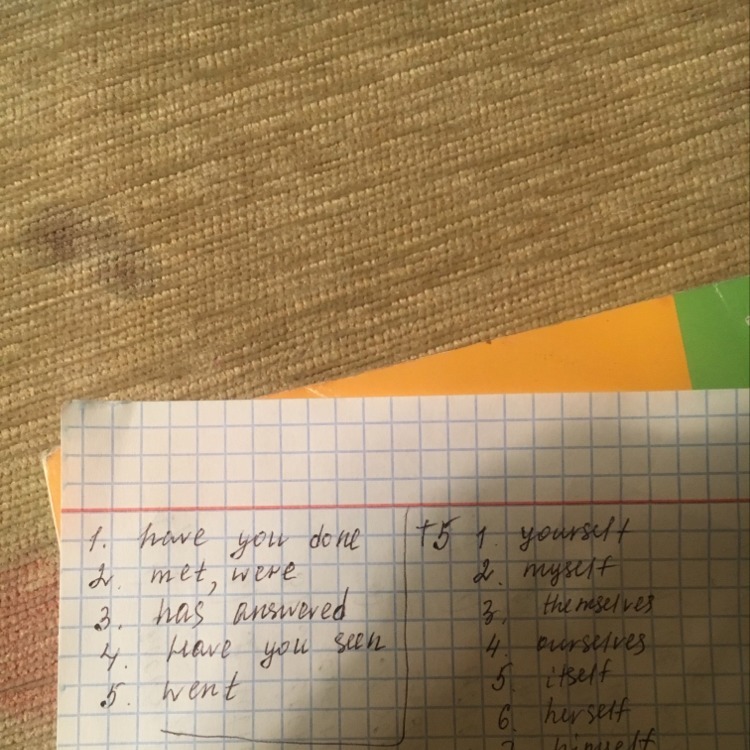 1. have you done
2. met, were
3. has answered
4. Have you seen
5. went
T5 1. yourself
2. myself
3. themselves
4. ourselves
5. itself
6. herself
7. himself